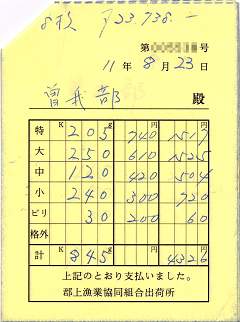 8枚 ¥23,738.-
第 号
11年8月23日
曽我部 殿
K g 円 円
特 205 740 1517
大 250 610 1525
中 120 420 504
小 240 300 720
ビリ 30 200 60
格外
K g 円
計 845 4326
上記のとおり支払いました。
郡上漁業協同組合出荷所